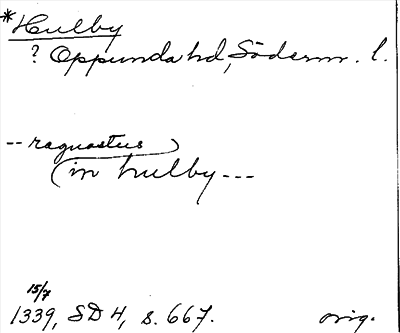 *Hulby
? Oppunda hd, Söderm. l.
-- ragnastus
(in hulby ---
15/7
1339, SD 4, s. 667.
orig.